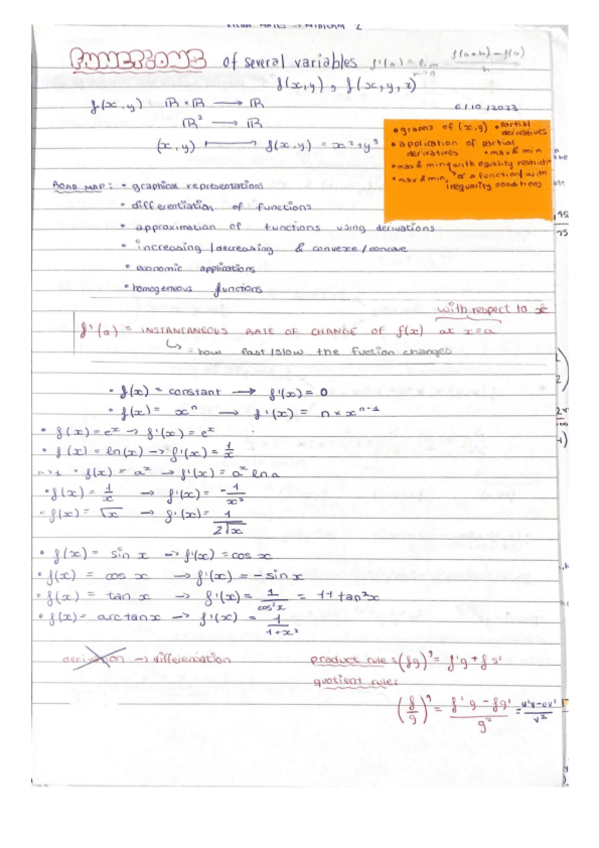 FUNCTIONS of several variables f'(a) = lim f(a+h)-f(a) / h
h→0
f(x,y), f(x,y,z)
f(x,y) ℝ × ℝ → ℝ
6/10/2023
ℝ² → ℝ
(x,y) ↦ f(x,y) = x²+y³
• graphs of (x,y) • partial derivatives
• application of partial derivatives • max & min
• max & min with equality
• max & min of a function with inequality conditions
ROAD MAP: • graphical representations
• differentiation of functions
• approximation of functions using derivations
• increasing/decreasing & convexe/concave
• economic applications
• homogeneous functions
with respect to x
f'(a) = INSTANTANEOUS RATE OF CHANGE OF f(x) at x=a
↳ = how fast/slow the fuction changes
• f(x) = constant → f'(x) = 0
• f(x) = xⁿ → f'(x) = n × xⁿ⁻¹
• f(x) = eˣ → f'(x) = eˣ
• f(x) = ln(x) → f'(x) = 1/x
• f(x) = aˣ → f'(x) = aˣ ln a
• f(x) = 1/x → f'(x) = -1/x²
• f(x) = √x → f'(x) = 1/2√x
• f(x) = sin x → f'(x) = cos x
• f(x) = cos x → f'(x) = -sin x
• f(x) = tan x → f'(x) = 1/cos²x = 1+tan²x
• f(x) = arctan x → f'(x) = 1/1+x²
derivation → differentiation
product rule: (fg)' = f'g + fg'
quotient rule:
(f/g)' = f'g - fg' / g² = u'v-uv' / v²